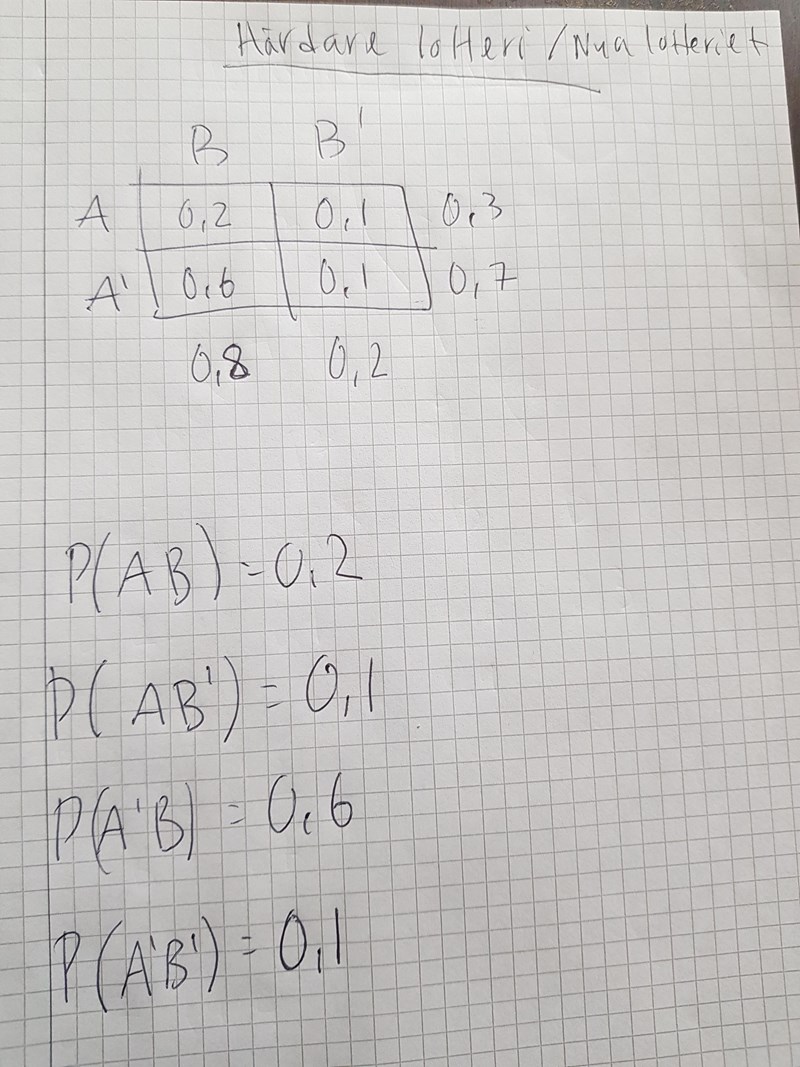 Hårdare lotteri / Nya lotteriet
B B'
A 0,2 0,1 0,3
A' 0,6 0,1 0,7
0,8 0,2
P(AB) = 0,2
P(AB') = 0,1
P(A'B) = 0,6
P(A'B') = 0,1